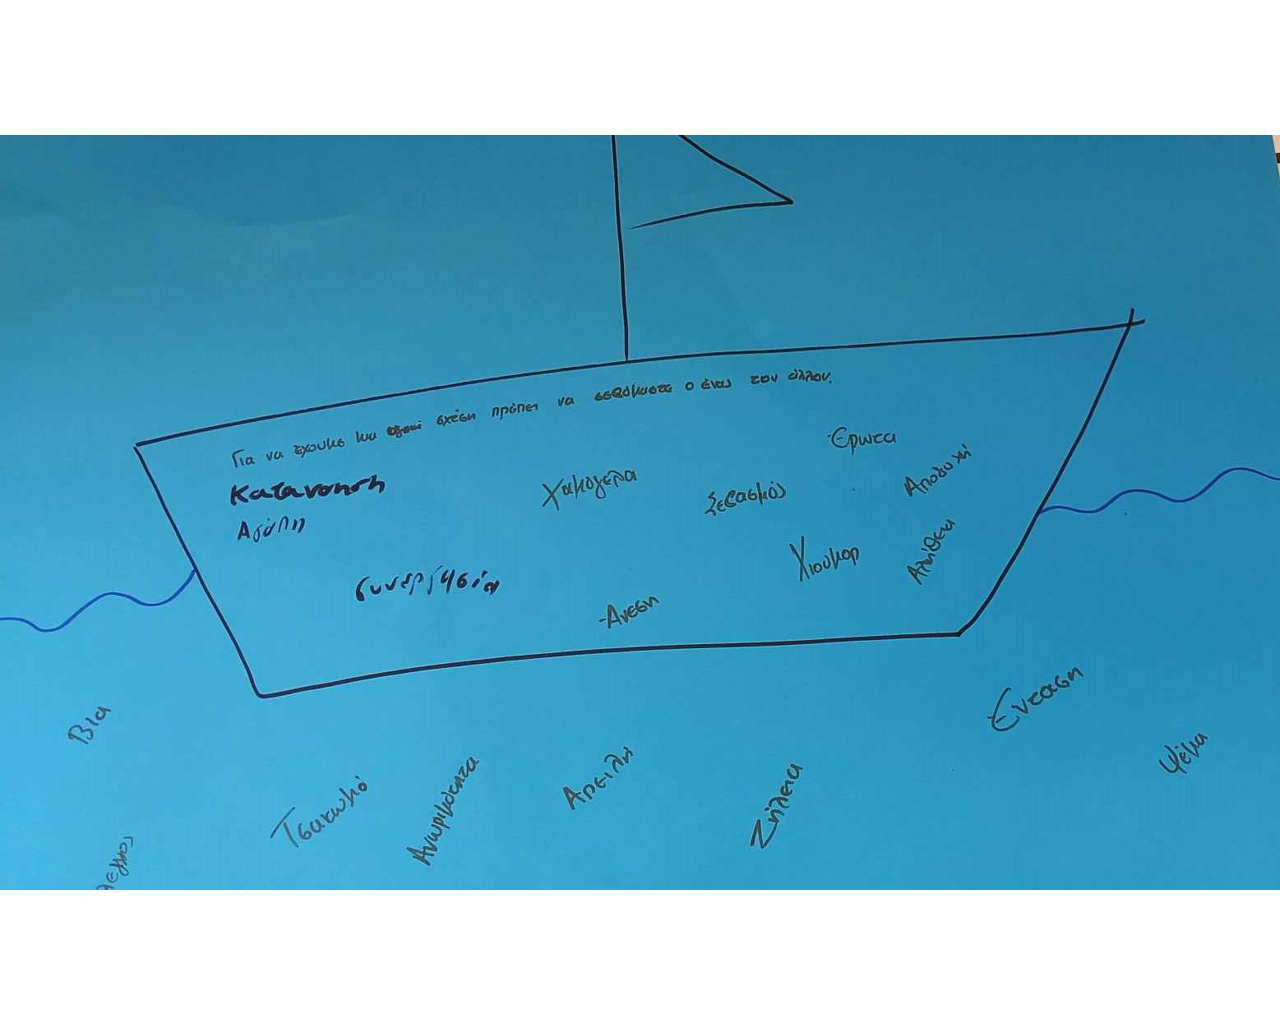 Για να έχουμε μια σχέση πρέπει να σεβόμαστε ο ένας τον άλλον.
Κατανόηση
Αγάπη
Συνεργασία
Χαμόγελα
Άνεση
Σεβασμός
Έρωτα
Χιούμορ
Αποδοχή
Αλήθεια
Βία
Τσακωμό
Ανωριμότητα
Απειλή
Ζήλεια
Ένταση
Ψέμα